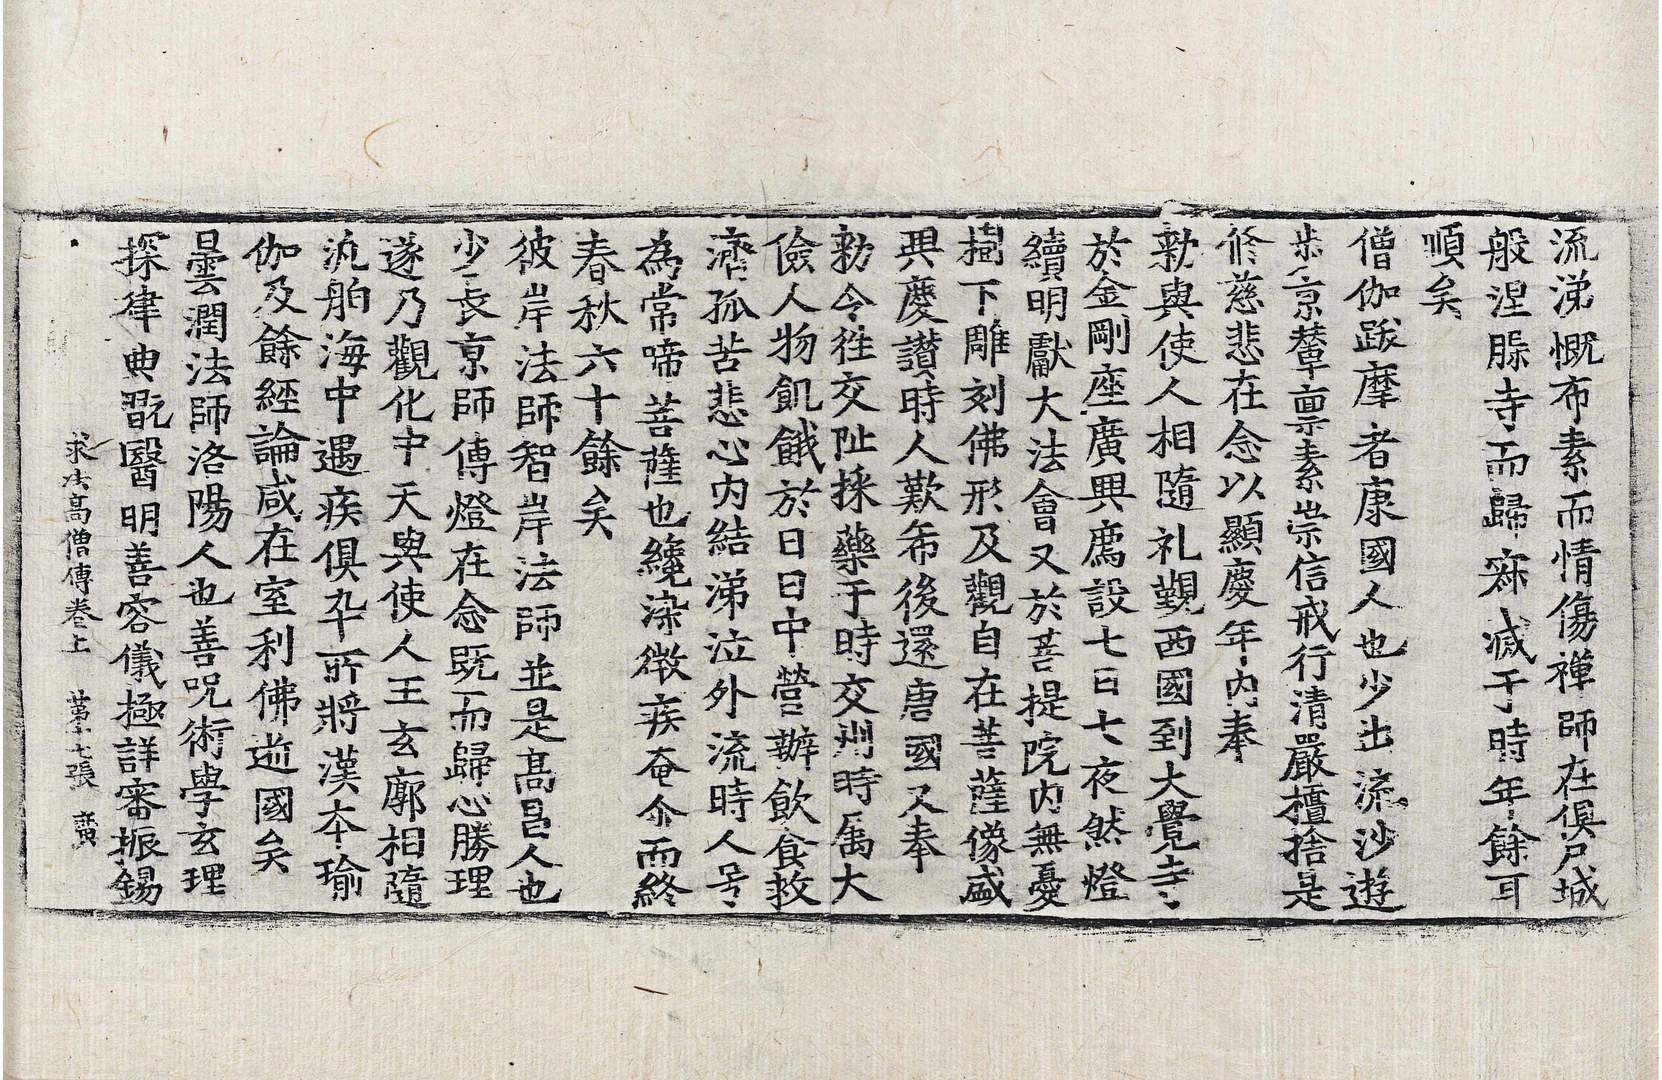 流涕慨布素而情傷禪師在俱尸城
般涅槃寺而歸寂滅于時年餘耳
順矣
僧伽跋摩者康國人也少出流沙遊
步京輦稟素崇信戒行清嚴檀捨是
修慈悲在念以顯慶年內奉
勑與使人相隨礼覲西國到大覺寺
於金剛座廣興薦設七日七夜然燈
續明獻大法會又於菩提院內無憂
樹下雕刻佛形及觀自在菩薩像盛
興慶讚時人歎希後還唐國又奉
勑令往交阯採藥于時交州時属大
儉人物飢餓於日日中營辦飲食救
濟孤苦悲心內結涕泣外流時人号
為常啼菩薩也纔染微疾奄尒而終
春秋六十餘矣
彼岸法師智岸法師並是高昌人也
少長京師傳燈在念既而歸心勝理
遂乃觀化中天與使人王玄廓相隨
汎舶海中遇疾俱卒所將漢本瑜
伽及餘經論咸在室利佛逝國矣
曇潤法師洛陽人也善呪術學玄理
探律典翫醫明善容儀極詳審振錫
求法高僧傳卷上 第十七張 廣